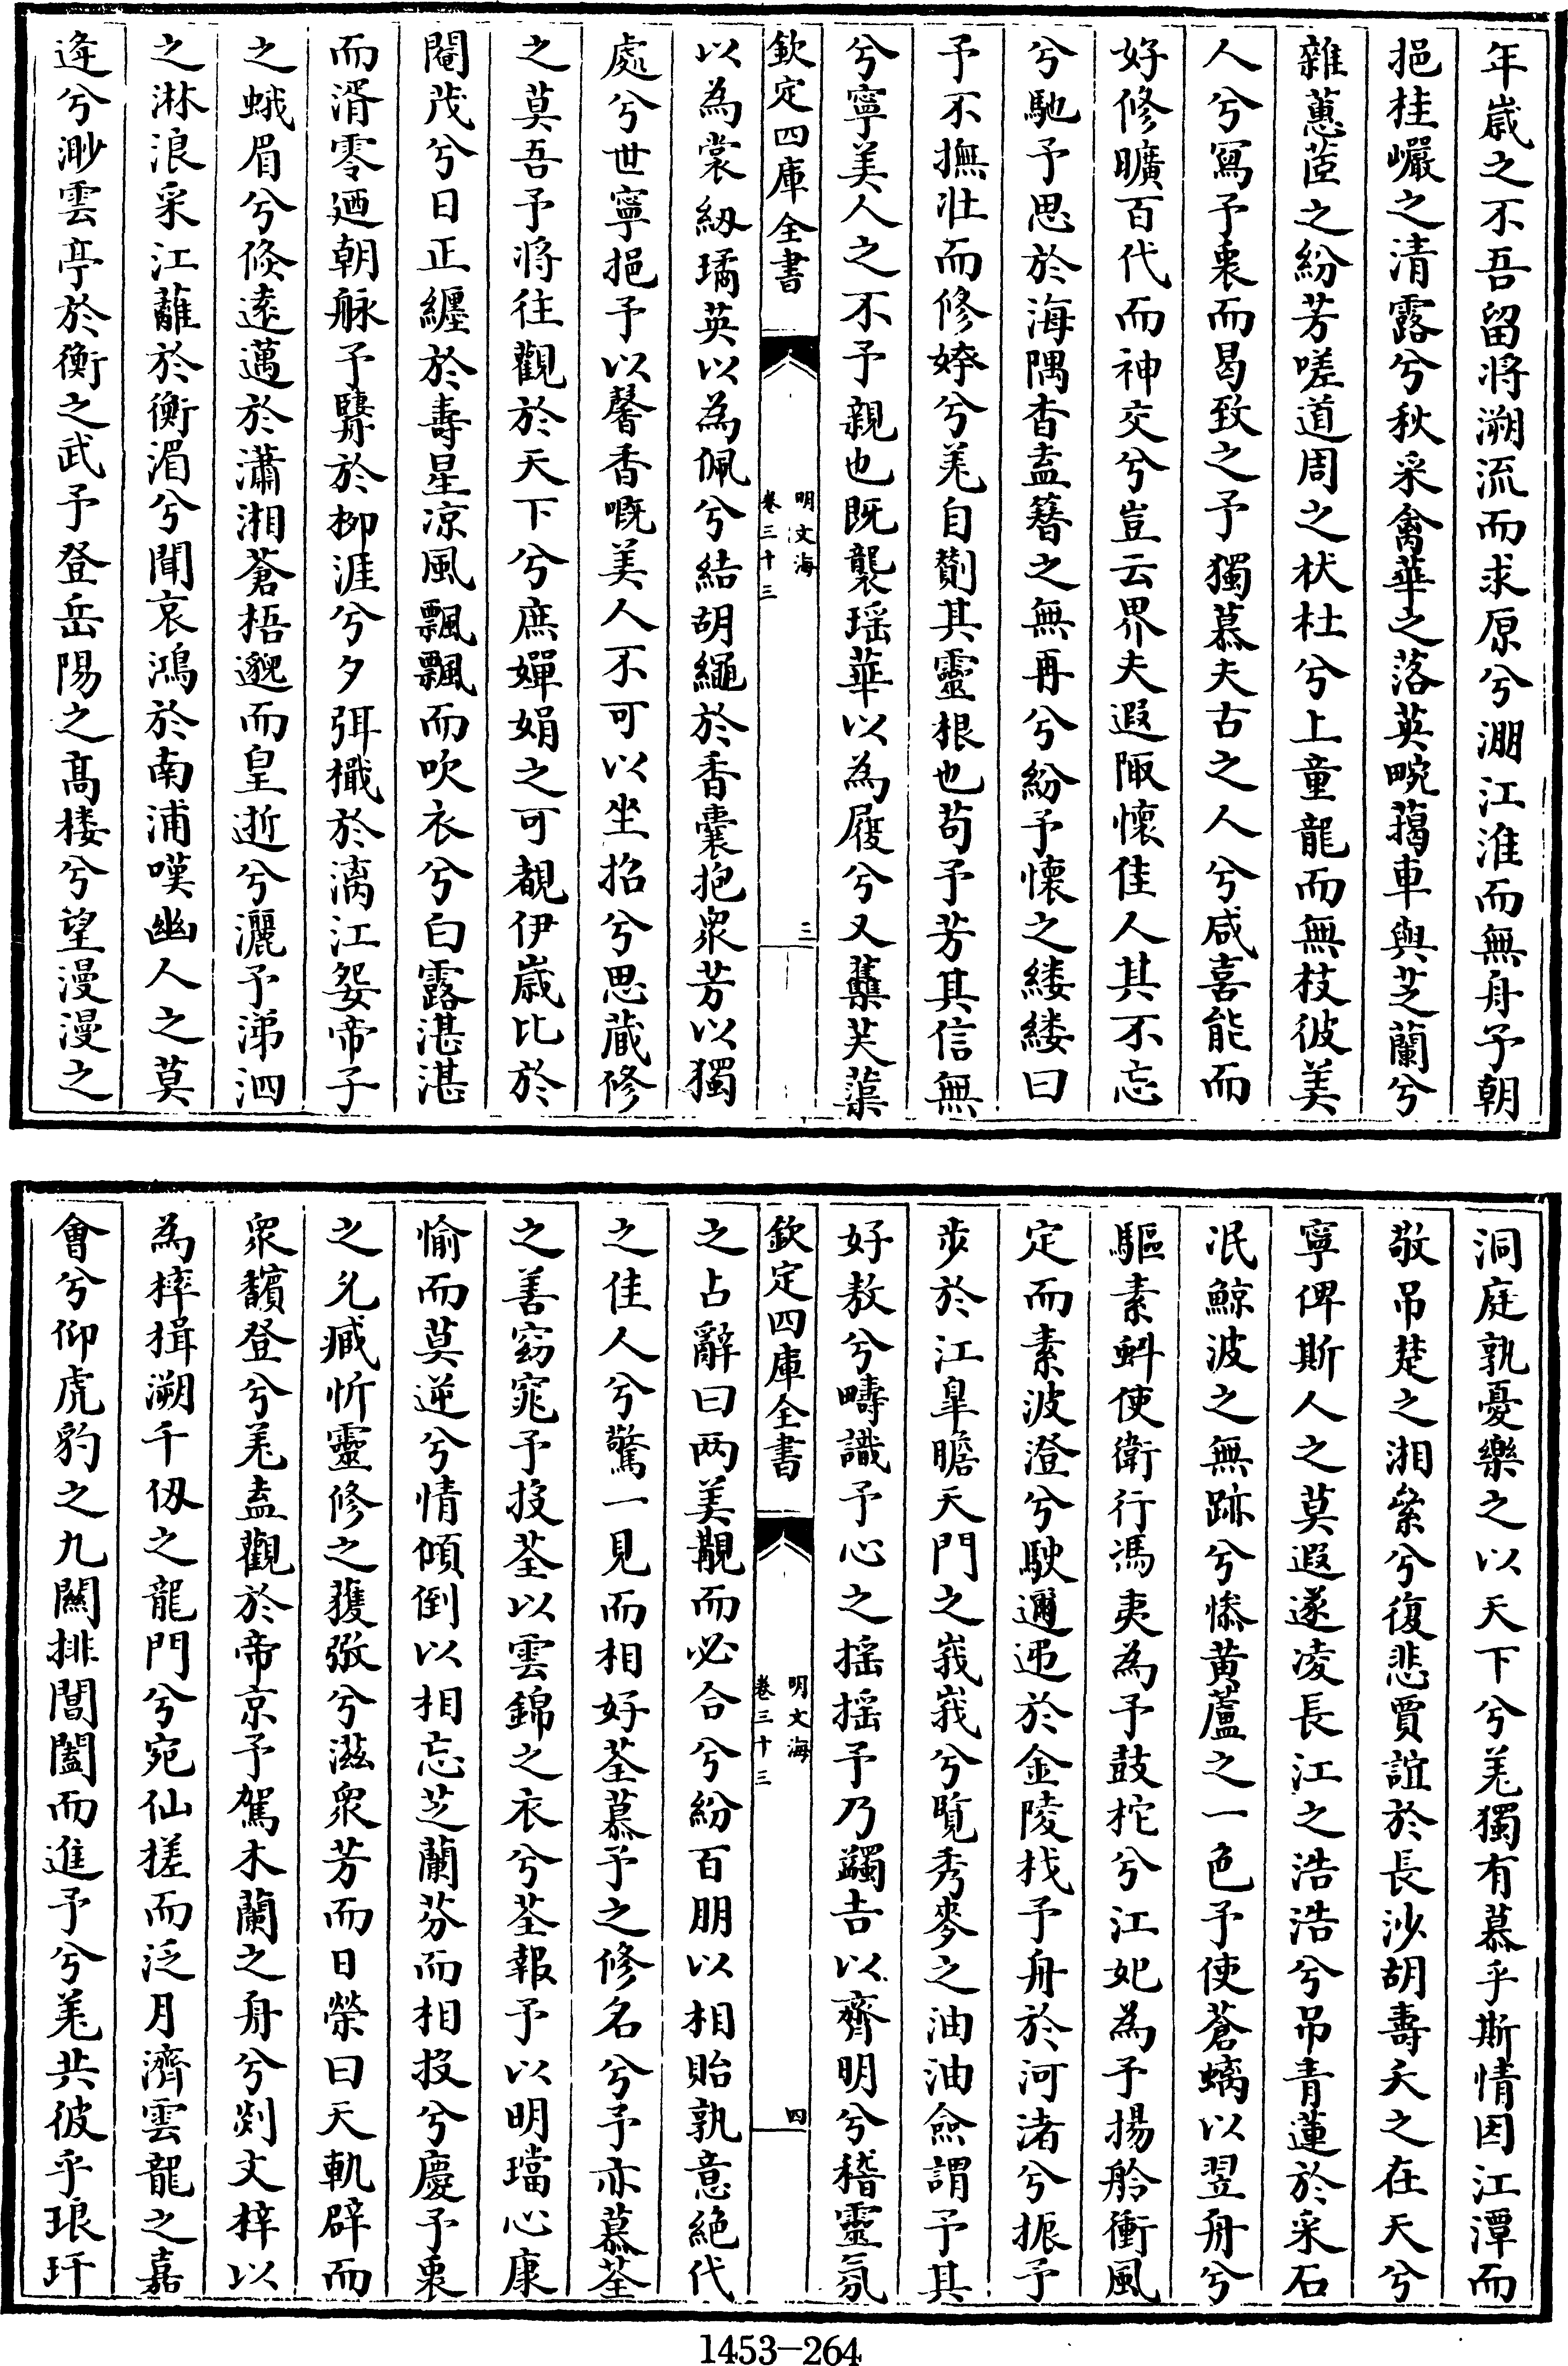 年歲之不吾留將溯流而求原兮淜江淮而無舟予朝
挹桂巘之清露兮秋采禽華之落英畹藒車與芝蘭兮
雜蕙茝之紛芳嗟道周之杕杜兮上童龍而無枝彼美
人兮寫予衷而曷致之予獨慕夫古之人兮咸喜能而
好修曠百代而神交兮豈云界夫遐陬懷佳人其不忘
兮馳予思於海隅杳盍簪之無再兮紛予懷之縷縷曰
予不撫壯而修姱兮羌自劗其靈根也苟予芳其信無
兮寧美人之不予親也既襲瑶華以為履兮又蘽芙蕖
欽定四庫全書
明文海
卷三十三
三
以為裳紉璚英以為佩兮結胡繩於香囊抱衆芳以獨
處兮世寧挹予以馨香嘅美人不可以坐招兮思蕆修
之莫吾予將往觀於天下兮庶嬋娟之可覩伊歲比於
閹茂兮日正纒於壽星凉風飄飄而吹衣兮白露湛湛
而湑零迺朝脉予騨於柳涯兮夕弭檝於漓江娑帝子
之蛾眉兮倐逺邁於瀟湘蒼梧邈而皇逝兮灑予涕泗
之淋浪采江蘺於衡湄兮聞哀鴻於南浦嘆幽人之莫
逄兮渺雲亭於衡之武予登岳陽之髙樓兮望漫漫之
洞庭孰憂樂之以天下兮羌獨有慕乎斯情因江潭而
敬吊楚之湘纍兮復悲賈誼於長沙胡壽夭之在天兮
寧俾斯人之莫遐遂凌長江之浩浩兮吊青蓮於采石
泯鯨波之無跡兮慘黄蘆之一色予使蒼螭以翌舟兮
驅素虯使衛行馮夷為予鼓柁兮江妃為予揚舲衝風
定而素波澄兮駛邇迡於金陵杙予舟於河渚兮振予
步於江臯瞻天門之峩峩兮覧秀麥之油油僉謂予其
好敖兮疇識予心之摇摇予乃蠲吉以齊明兮稽靈氛
欽定四庫全書
明文海
卷三十三
四
之占辭曰两美覯而必合兮紛百朋以相貽孰意絶代
之佳人兮驚一見而相好荃慕予之修名兮予亦慕荃
之善窈窕予投荃以雲錦之衣兮荃報予以明璫心康
愉而莫逆兮情傾倒以相忘芝蘭芬而相投兮慶予衷
之允臧忻靈修之獲弢兮滋衆芳而日榮曰天軌辟而
衆馪登兮羌盍觀於帝京予駕木蘭之舟兮剡文梓以
為椊楫溯千仭之龍門兮宛仙槎而泛月濟雲龍之嘉
會兮仰虎豹之九闗排閶闔而進予兮羌共彼乎琅玕
1453-264